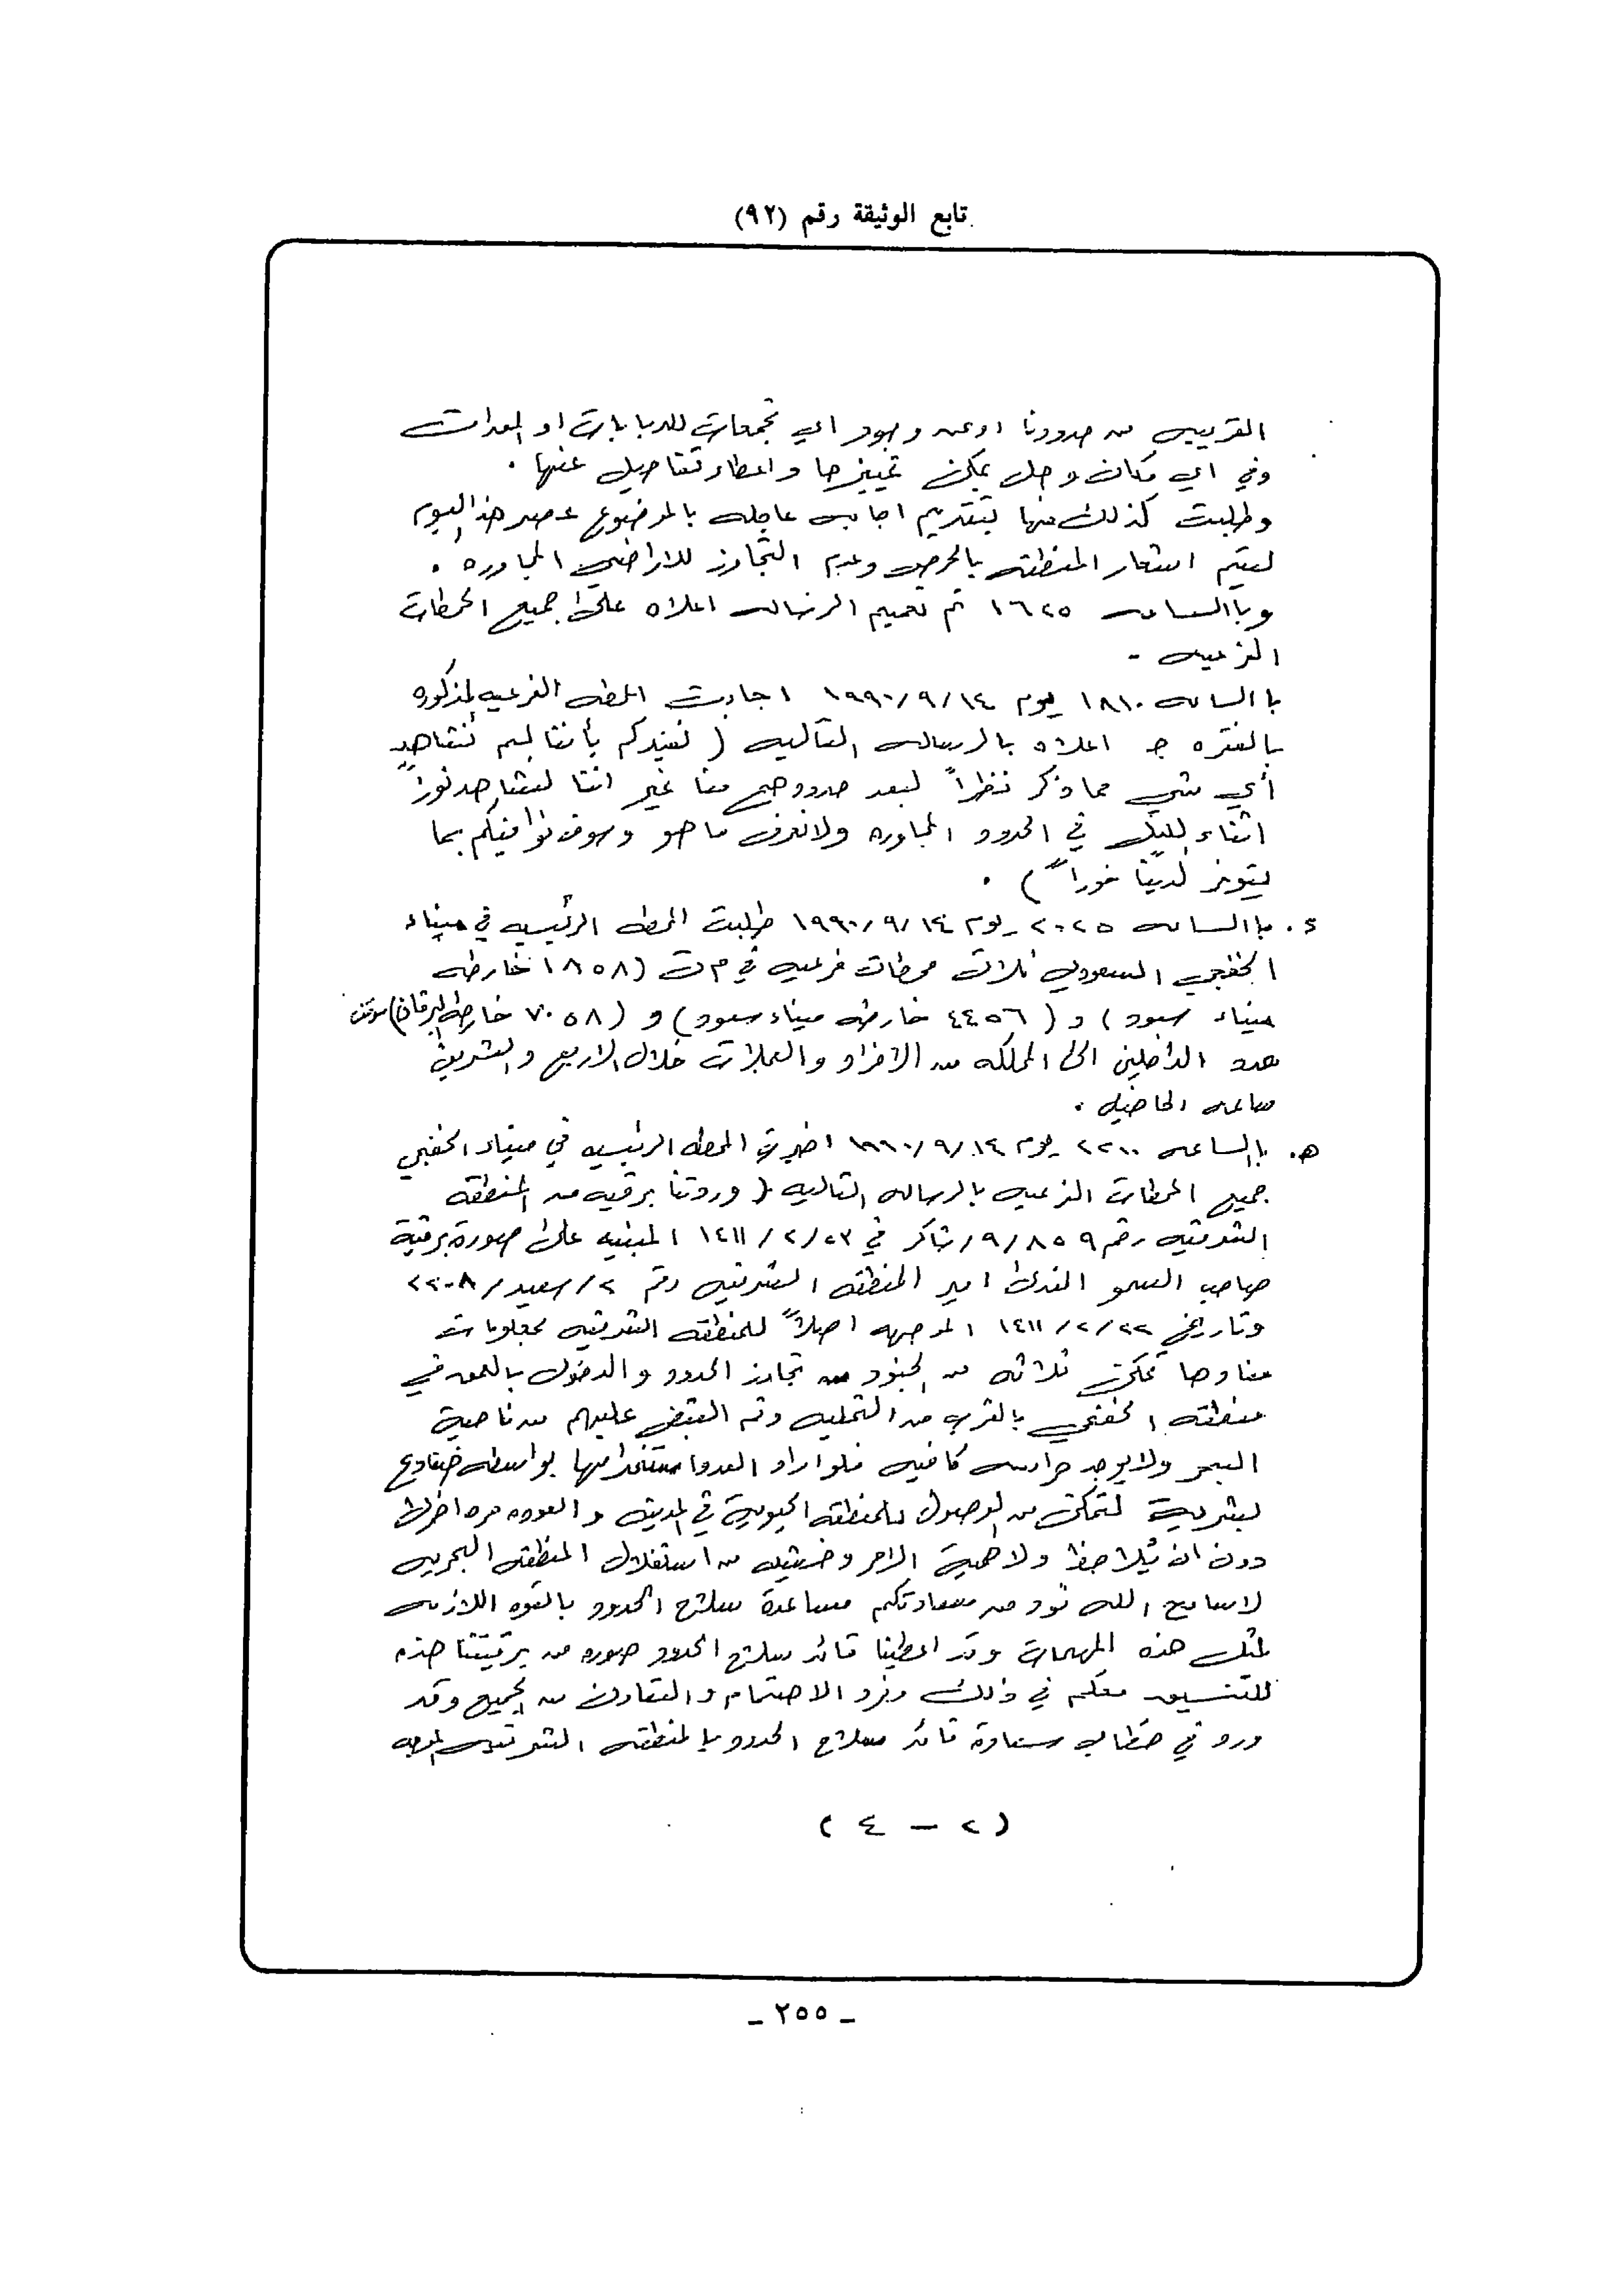 تابع الوثيقة رقم (٩٢)
القريبه من حدودنا او عن وجود اي تجمعات للدبابات او المعدات
وفي اي مكان وهل يمكن تمييزها واعطاء تفاصيل عنها .
وطلبت كذلك منها بتقديم اجابه عاجله بالموضوع عصر هذا اليوم
ليتم اشعار المنطقه بالحرص وعدم التجاوز للاراضي المجاوره .
وباالساعه ١٦٢٥ تم تعميم الرساله اعلاه على جميع المحطات
الفرعيه -
باالساعه ١٨١٠ يوم ١٩٩٠/٩/١٤ اجابت المحطه الفرعيه المذكوره
بالفقره جـ اعلاه بالرساله التاليه ( نفيدكم بأننا لم نشاهد
أي شي مما ذكر نظراً لبعد حدودهم منا غير اننا نشاهد نوراً
اثناء الليل في الحدود المجاوره ولانعرف ما هو وسوف نوافيكم بما
يتوفر لدينا فوراً ) .
د . باالساعه ٢٠٢٥ يوم ١٩٩٠/٩/١٤ طلبت المحطه الرئيسيه في ميناء
الخفجي السعودي ثلاث محطات فرعيه في م ت (١٨٥٨ خارطه
ميناء سعود ) و ( ٤٤٥٦ خارطه ميناء سعود ) و ( ٧٠٥٨ خارطه البرقان)
عدد الداخلين الى المملكه من الافراد والعجلات خلال الاربع والعشرين
ساعه الماضيه .
هـ . باالساعه ٢٢٠٠ يوم ١٩٩٠/٩/١٤ اخبرت المحطه الرئيسيه في ميناء الخفجي
جميع المحطات الفرعيه بالرساله التاليه ( وردتنا برقيه من المنطقه
الشرقيه رقم ٩/٨٥٩/شاكر في ١٤١١/٢/٢٣ المبنيه على صورة برقية
صاحب السمو الملكي امير المنطقه الشرقيه رقم ٢/سعيد/٢٢٠٨
وتاريخ ١٤١١/٢/٢٢ الموجهه اصلاً للمنطقه الشرقيه بمعلومات
مفادها تمكن ثلاثه من الجنود من تجاوز الحدود والدخول بالعمق في
منطقه الخفجي بالقرب من التحليه وتم القبض عليهم من ناحية
البحر ولايوجد حراسه كافيه فلو اراد العدو استخدامها بواسطه ضفادع
بشرية لتمكن من الوصول للمنطقه الحيوية في المدينه والعوده مره اخرى
دون ان يلاحظ ولاهمية الامر وخشيه من استغلال المنطقه البحريه
لاسامح الله نود من سعادتكم مساعدة سلاح الحدود بالقوه اللازمه
لمثل هذه المهمات وقد اعطينا قائد سلاح الحدود صوره من برقيتنا هذه
للتنسيق معكم في ذلك ونود الاهتمام والتعاون من الجميع وقد
ورد في خطاب سعادة قائد سلاح الحدود بالمنطقه الشرقيه الموجه
( ٢ - ٤ )
- ٢٥٥ -